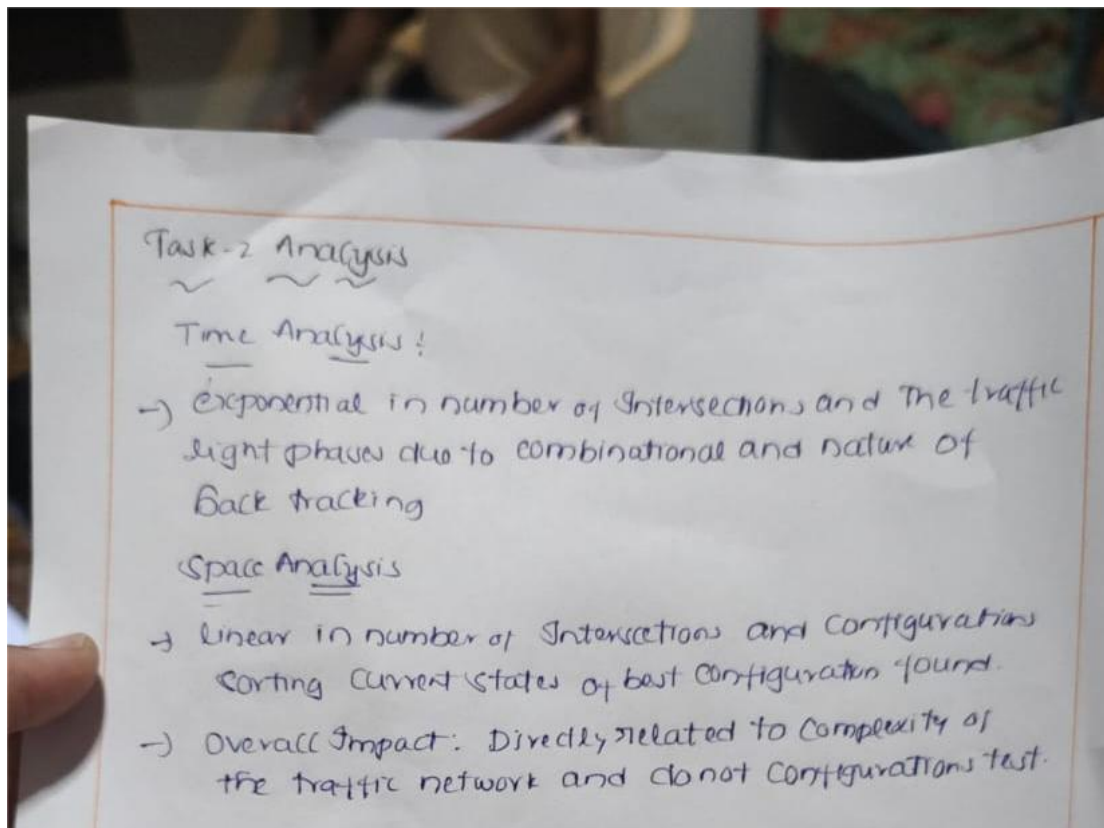 Task-2 Analysis
Time Analysis:
→ exponential in number of Intersections and The traffic
light phases due to combinational and nature of
back tracking
Space Analysis
→ linear in number of Interscetions and configurations
sorting current states of best configuration found.
→ Overall Impact: Directly related to complexity of
the traffic network and do not configurations test.